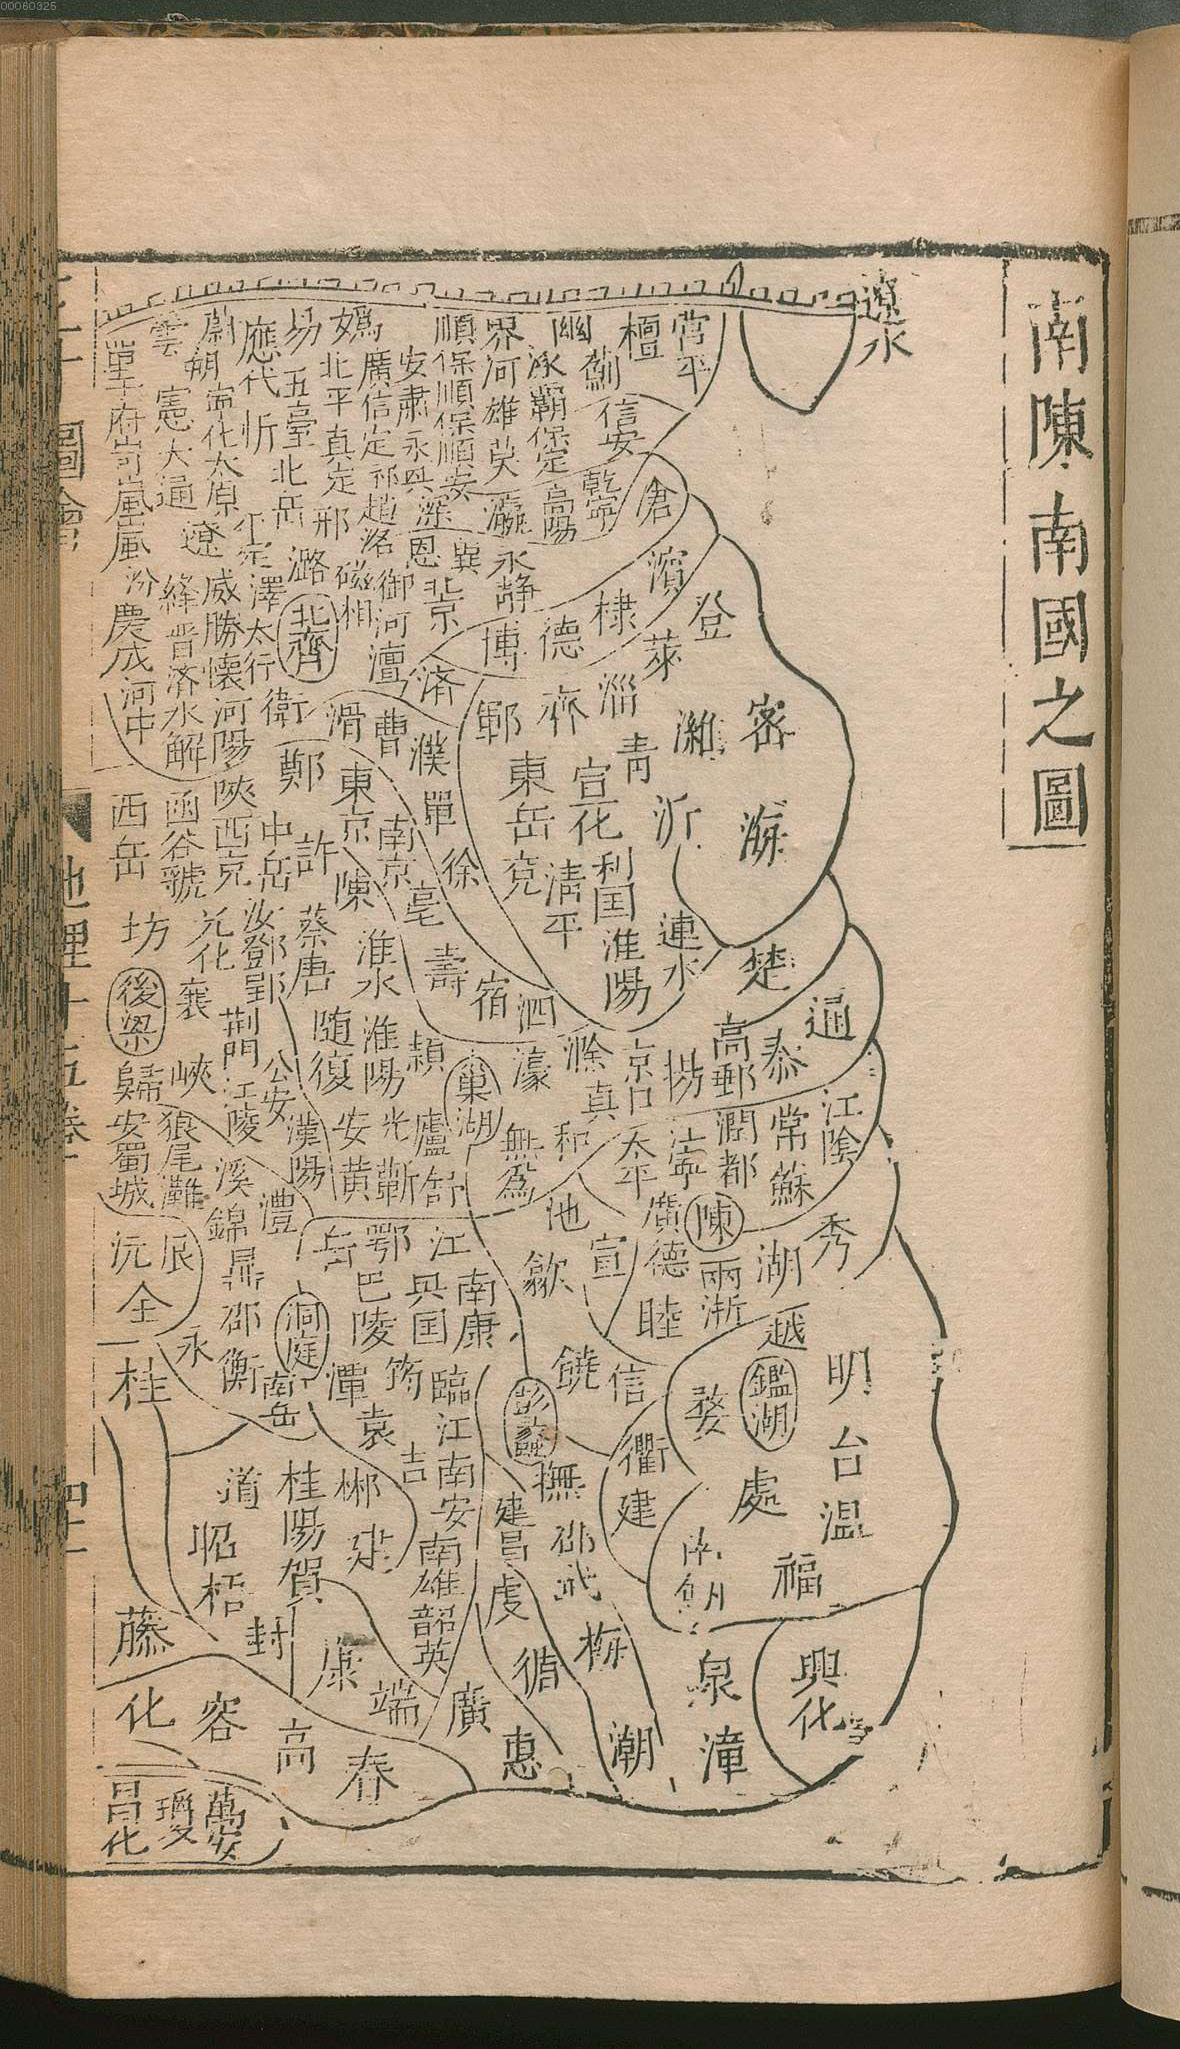 00060325
南陳南國之圖
遼水
營平
檀
薊
幽
涿
霸保定
高陽
信安
乾寧
滄
界河雄莫瀛
順保順保順安
安肅永興深
媯
廣信定祁趙洺
北平真定邢
易
五臺北岳
潞
應代忻
蔚朔
寧化太原
雲
憲大通
遼
府岢嵐嵐
汾
慶成
河中
絳晉
濟水解
威勝懷河陽
澤
太行
北齊
衛
磁相
御河澶
恩
北京
冀
永静
博
德
棣
濱
登
萊
濟
鄆
齊
淄
青
濰
密
海
沂
東岳兗
宣化
清平
利国
淮陽
連水
滑
曹
濮
單
徐
鄭
東京
南京
亳
陳
許
中岳
陝西京
函谷虢
西岳
坊
光化
襄
後梁
汝鄧
鄖郢
蔡
唐
淮水
壽
宿
泗
楚
通
泰
高郵
揚
京口
滁
真
濠
巢湖
潁
淮陽
光
蘄
隨復
安
黃
廬
舒
無為
和
荆門
江陵
公安
漢陽
峽
歸
安蜀城
狼尾灘
溪錦
澧
辰
沅
全
鼎邵
衡
永
桂
洞庭
南岳
潭
岳
鄂
巴陵
江
興国
南康
池
歙
宣
太平
江寧
潤
都
常
蘇
江陰
陳
廣德
兩浙
湖
秀
睦
越
鑑湖
明
台
温
婺
處
衢
建
信
饒
彭蠡
撫
邵武
建昌
虔
筠
臨江
南安
南雄
韶
英
袁
吉
郴
桂陽
賀
道
昭
梧
藤
封
康
端
廣
循
梅
惠
潮
漳
泉
福
興化
化
容
高
春
萬安
瓊
昌化